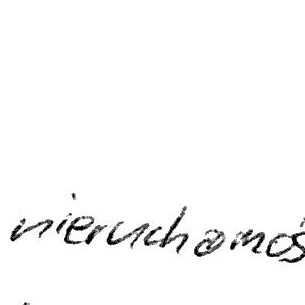 nieruchomoś